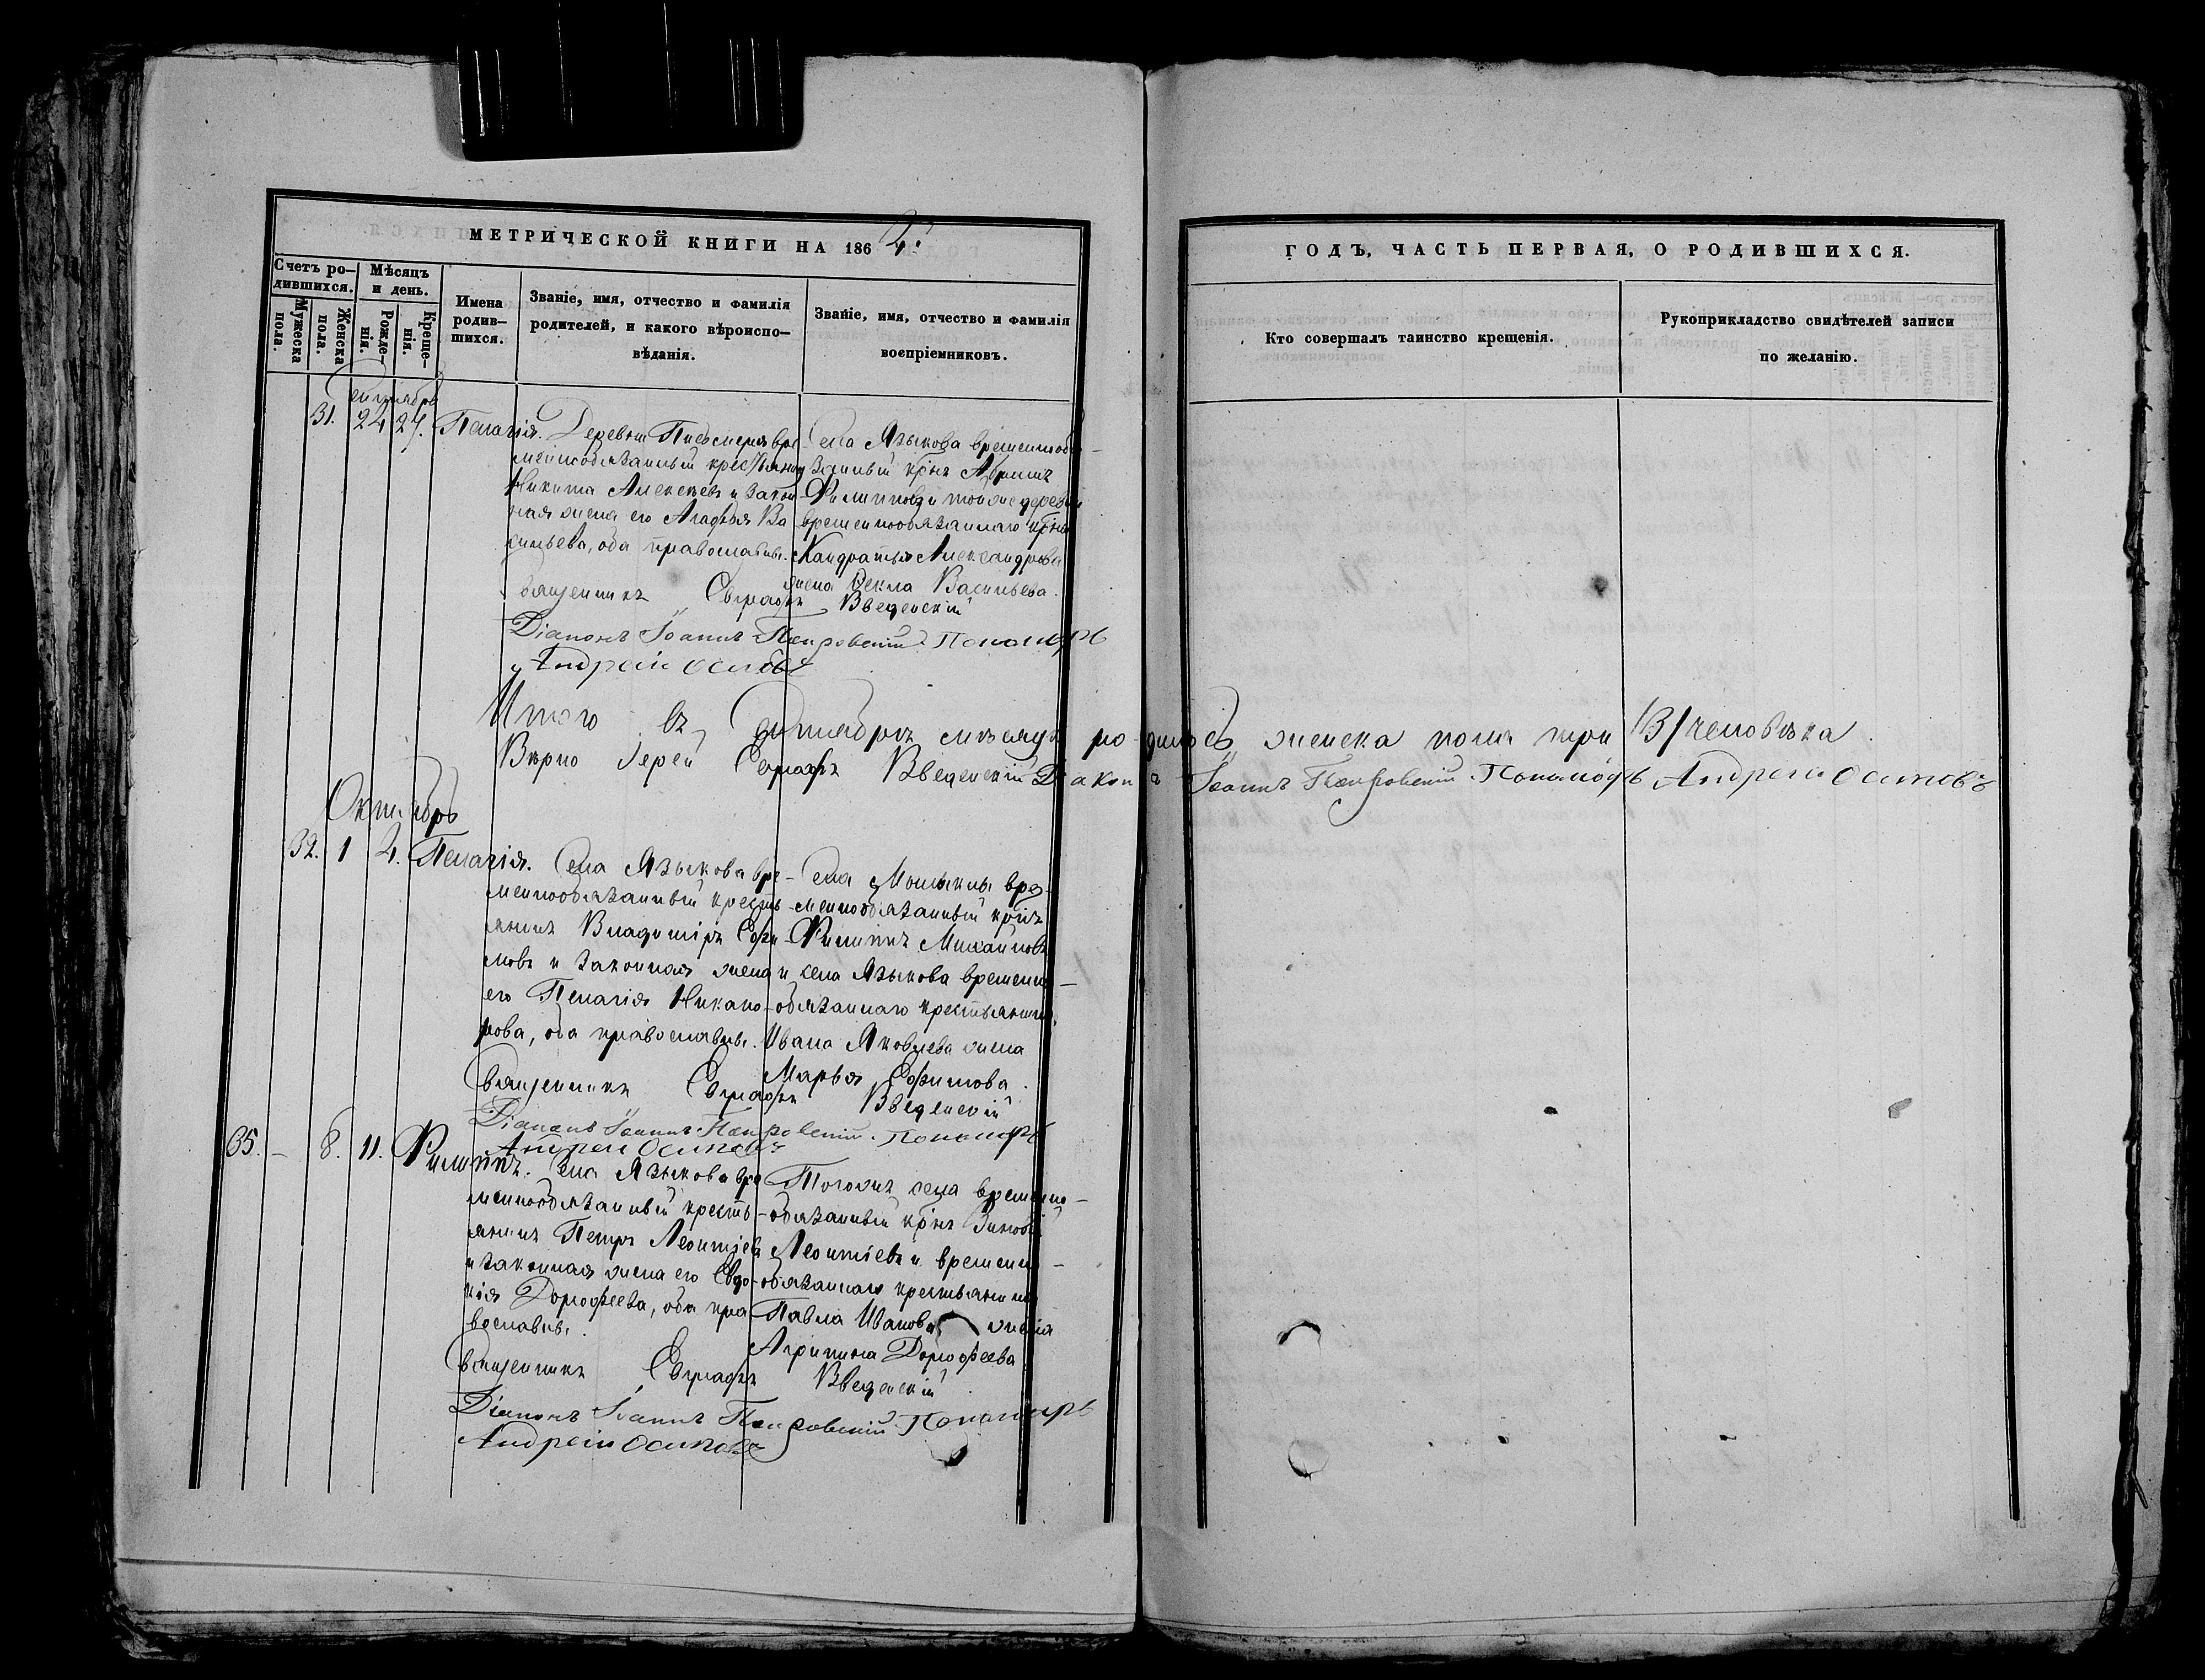 МЕТРИЧЕСКОЙ КНИГИ НА 1862.
Счетъ ро-
дившихся.
Мѣсяцъ
и день.
Мужеска
пола.
Женска
пола.
Рожде-
нія.
Креще-
нія.
Имена
родив-
шихся.
Званіе, имя, отчество и фамилія
родителей, и какого вѣроиспо-
вѣданія.
Званіе, имя, отчество и фамилія
воспріемниковъ.
ГОДЪ, ЧАСТЬ ПЕРВАЯ, О РОДИВШИХСЯ.
Кто совершалъ таинство крещенія.
Рукоприкладство свидѣтелей записи
по желанію.
Сентябрь
31. 24 27. Пелагія.
Деревни вре-
меннообязанный крестьянинъ
Никита Алексѣевъ и закон-
ная жена его Агафья Ва-
сильева, оба православны.
Села Языкова временнооб-
занный кр̃нъ Абрамъ
Филипповъ и тойже деревни
временнообязаннаго кр̃на
Кандратья Александрова
жена Ѳекла Васильева.
Священникъ Евграфъ Введенскій
Діаконъ Іоаннъ Пономарь
Андрей Осиповъ
Итого въ Сентябрѣ мѣсяцѣ родилось женска пола три /3/ человѣка.
Вѣрно Іерей Евграфъ Введенскій Діаконъ Іоаннъ Пономарь Андрей Осиповъ
Октябрь
32. 1 4. Пелагія.
Села Языкова вре-
меннообязанный кресть-
янинъ Владиміръ Ефи-
мовъ и законная жена
его Пелагія Никано-
рова, оба православны.
Села вре-
меннообязанный кр̃нъ
Филиппъ Михайловъ
и села Языкова временно-
обязаннаго крестьянина
Ивана Яковлева жена
Марья Ефимова.
Священникъ Евграфъ Введенскій
Діаконъ Іоаннъ Пономарь
Андрей Осиповъ
35. - 8. 11. Филиппъ.
Села Языкова вре-
меннообязанный кресть-
янинъ Петръ Леонтіевъ
и законная жена его Евдо-
кія Дорофеева, оба пра-
вославны.
Тогожъ села временно-
обязанный кр̃нъ Зиновій
Леонтіевъ и временно-
обязаннаго крестьянина
Павла Иванова жена
Агрипина Дорофеева
Священникъ Евграфъ Введенскій
Діаконъ Іоаннъ Пономарь
Андрей Осиповъ